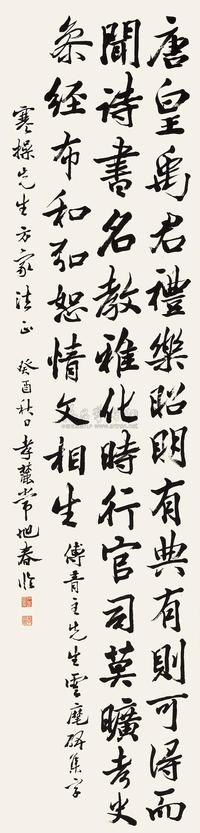 唐皇禹君禮樂昭明有典有則可得而
聞詩書名教雅化時行官司莫曠考史
參經布和弘恕情文相生
傅青主先生雲麾碑集字
寒操先生方家法正 癸酉秋日孝麓常地春臨